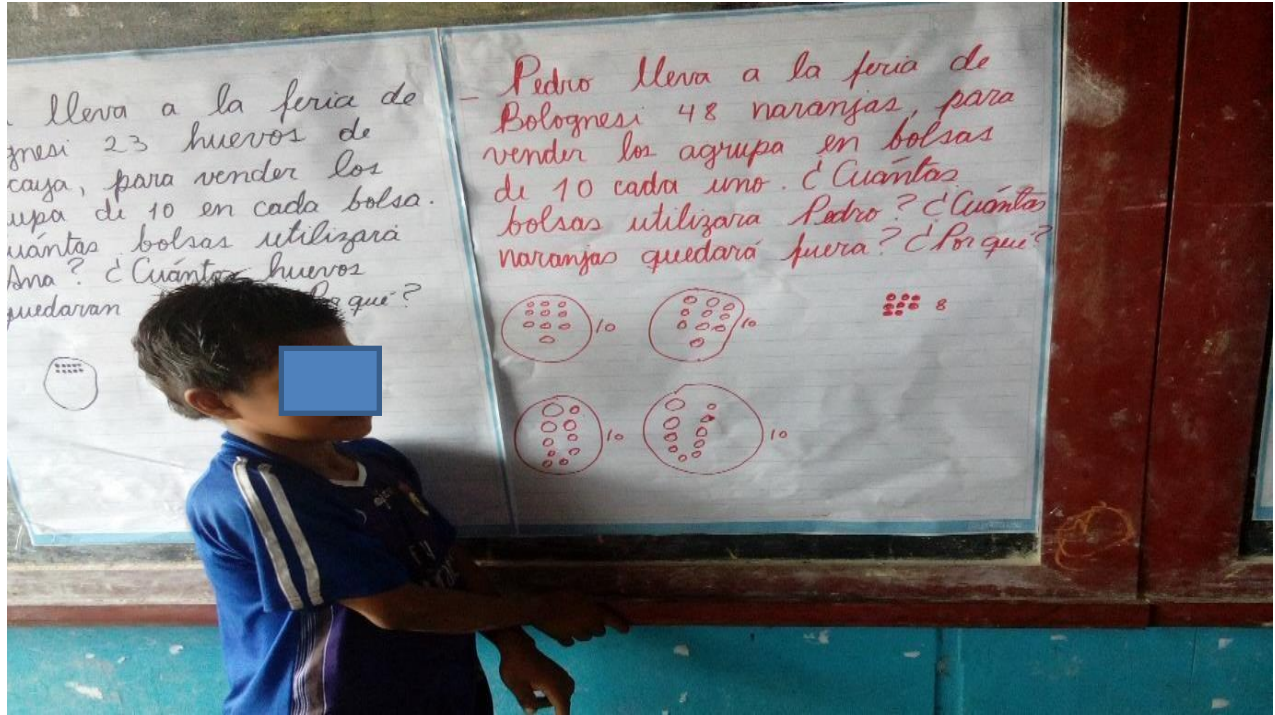 lleva a la feria de
gnesi 23 huevos de
caya, para vender los
upa de 10 en cada bolsa.
uántas bolsas utilizará
Ana? ¿Cuántos huevos
quedaran Por que?
_ Pedro lleva a la feria de
Bolognesi 48 naranjas, para
vender los agrupa en bolsas
de 10 cada uno. ¿Cuántas
bolsas utilizara Pedro? ¿Cuántas
naranjas quedará fuera? ¿Por qué?
10 10 8
10 10